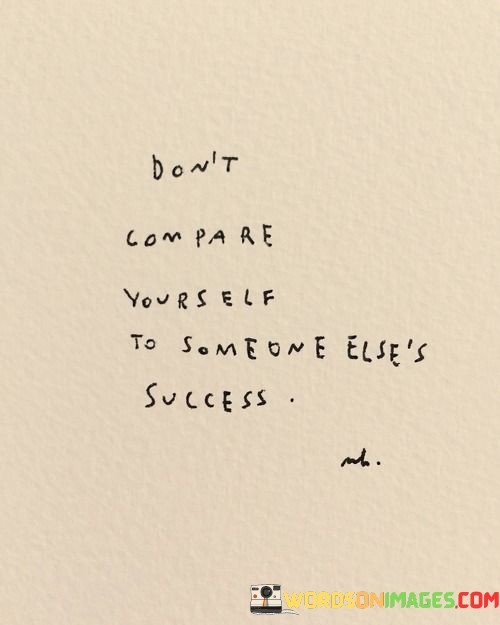 DON'T
COMPARE
YOURSELF
TO SOMEONE ELSE'S
SUCCESS.
mh.
WORDSONIMAGES.COM